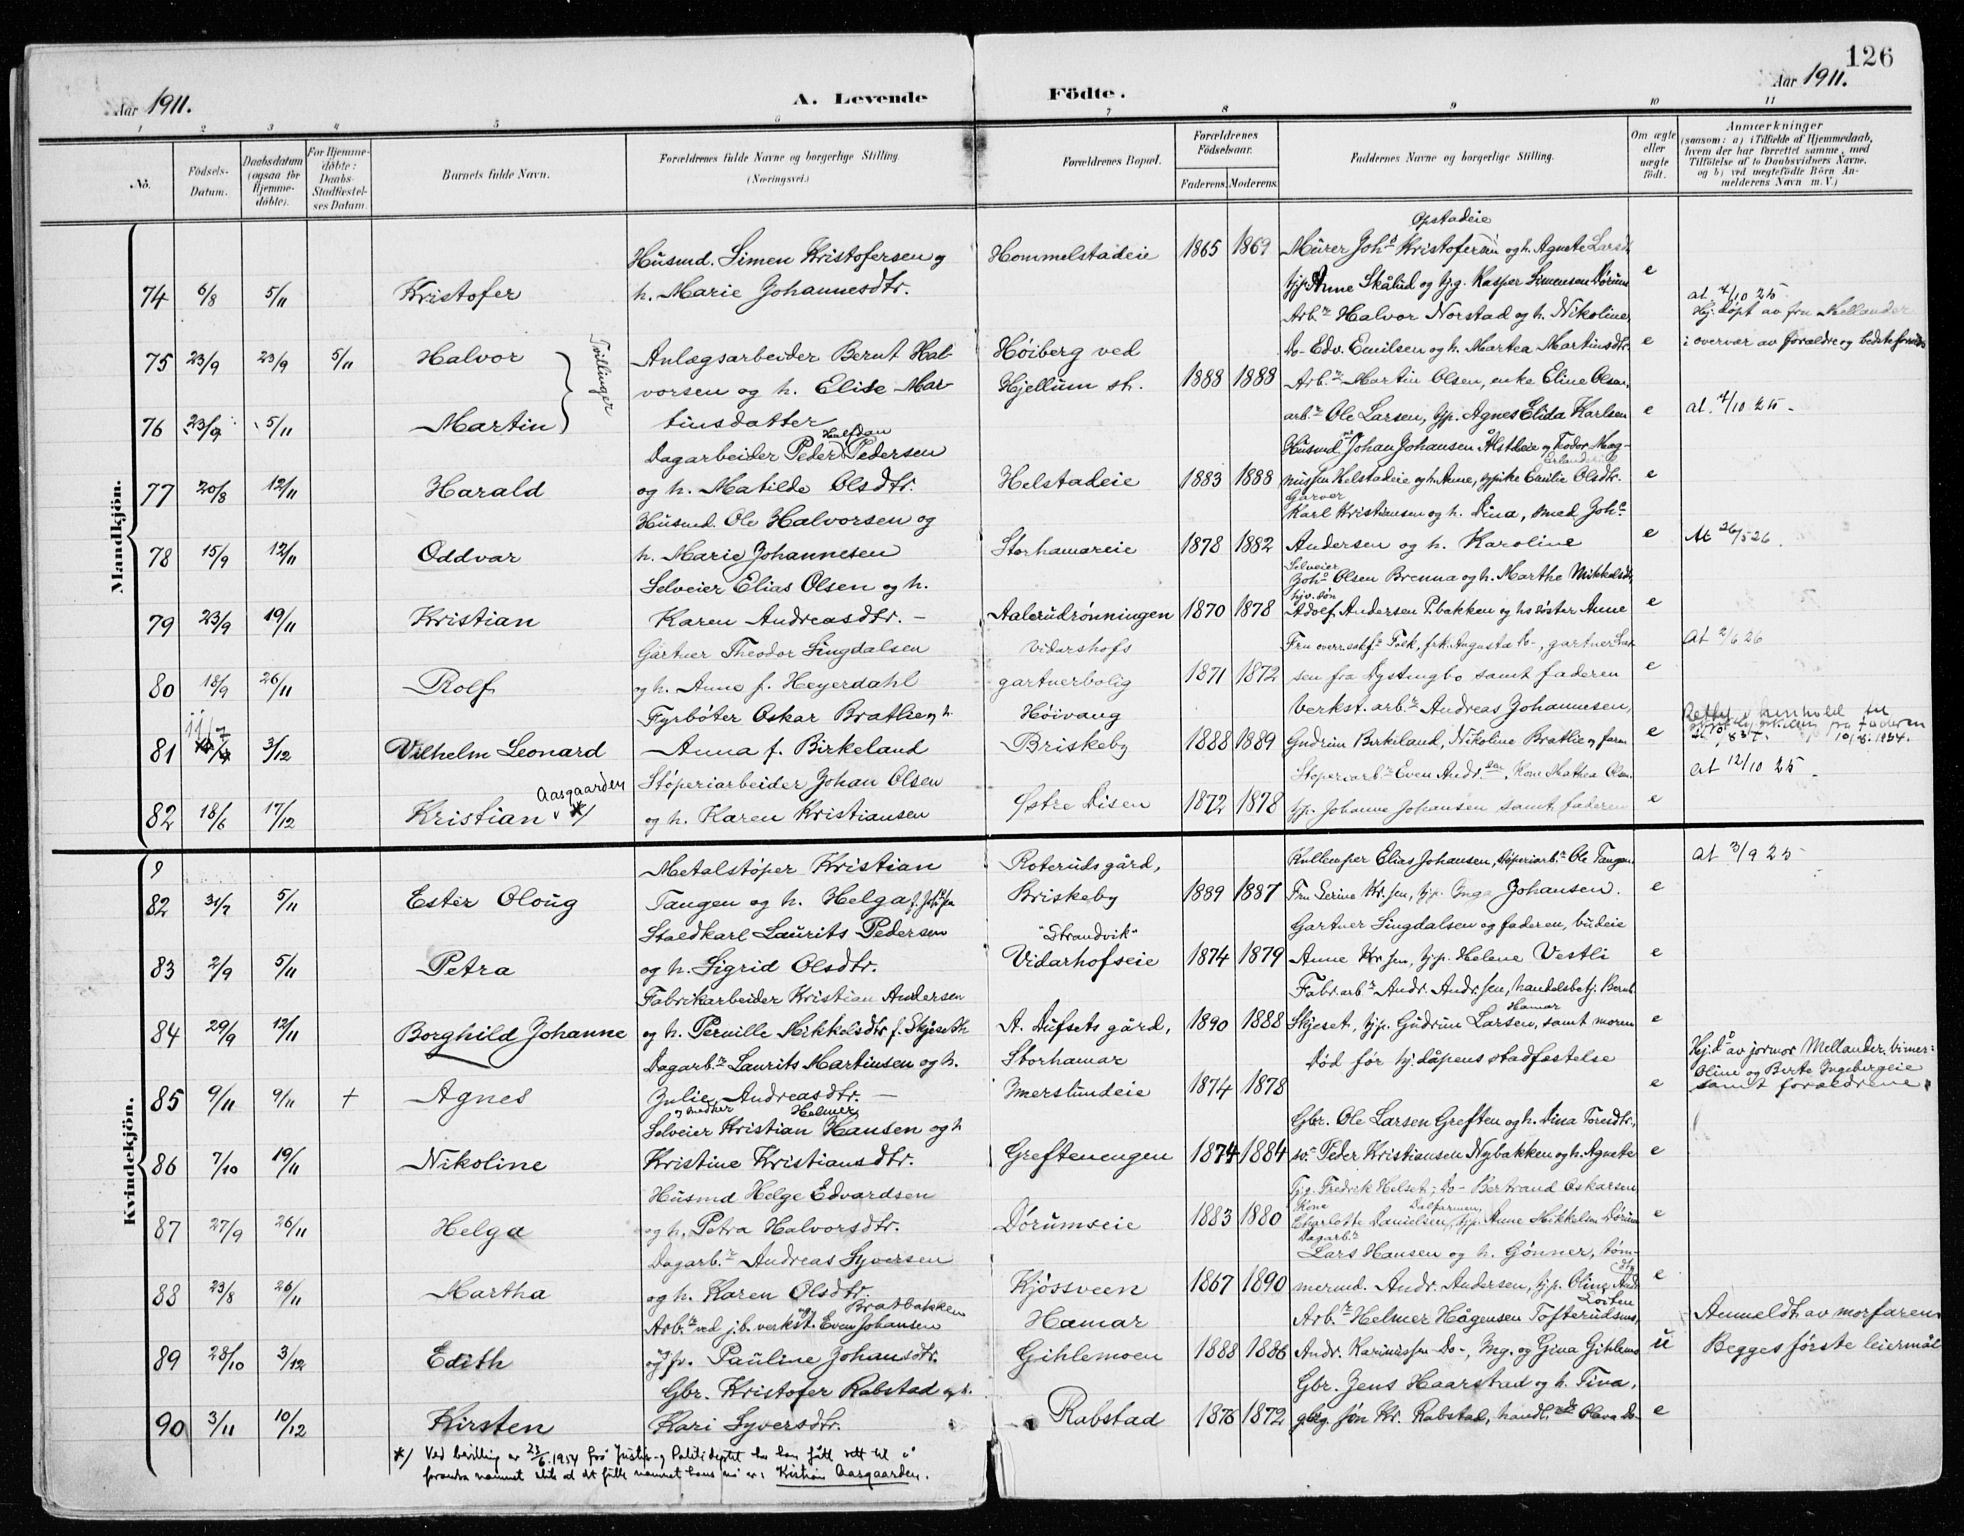 126
Aar 1911. A. Levende Födte. Aar 1911.
1 2 3 4 5 6 7 8 9 10 11
No.
Födsels-Datum.
Daabsdatum (ogsaa for Hjemmedöbte).
For Hjemmedöbte: Daabs-Stadfæstelses Datum.
Barnets fulde Navn.
Forældrenes fulde Navne og borgerlige Stilling.
(Næringsvei.)
Forældrenes Bopæl.
Forældrenes Födselsaar.
Faderens. Moderens.
Faddernes Navne og borgerlige Stilling.
Om ægte eller uægte födt.
Anmærkninger
(saasom: a) i Tilfælde af Hjemmedaab, hvem der har forrettet samme, med Tilföielse af to Daabsvidners Navne, og b) ved uægtefödte Börn Anmelderens Navn m. V.)
Mandkjön.
Opstadeie
Husmd. Simen Kristofersen og Hommelstadeie 1865 1869 Murer Johs Kristofersen og h. Agnete Larsdt.
74 6/8 5/11 Kristofer h. Marie Johannesdtr. tjp. Anne Skålud og tj.g. Kasper Simensen Dørum e
at. 4/10 25.
Arb.r Halvor Norstad og h. Nikoline, Hj. døpt av fru Mellander
75 23/9 23/9 5/11 Halvor Tvillinger Anlægsarbeider Bernt Hal- Høiberg ved Do- Edv. Emilsen og h. Martea Martinsdtr. e i overvær av forældre og bedsteforældre
vorsen og h. Elise Mar- Hjellum st. 1888 1888 Arb.r Martin Olsen, enke Eline Olsen,
76 23/9 5/11 Martin tinsdatter arb.r Ole Larsen, tjp. Agnes Elida Karlsen e at. 4/10 25.
Dagarbeider Peder Halfdan Pedersen Husmd Johan Johansen Ålstadeie og Teodor Mag-
77 20/8 12/11 Harald og h. Matilde Olsdtr. Helstadeie 1883 1888 nussen Helstadeie og h. Anne, pike Emilie Olsdtr. e
Garver
Husmd. Ole Halvorsen og Karl Kristiansen og h. Dina, smed Johs
78 15/9 12/11 Oddvar h. Marie Johannesen Storhamareie 1878 1882 Andersen og h. Karoline e At 26/5 26.
Selveier
Selveier Elias Olsen og h. Johs Olsen Brenna og h. Marthe Mikkelsdt.
79 23/9 19/11 Kristian Karen Andreasdtr. Aalerudrønningen 1870 1878 Adolf Andersen P.bakken og hs søster Anne e
Gartner Theodor Singdalsen Vidarshofs Fru overretssf. Falk, frk. Augusta Do-, gartner Lar- At 2/6 26
80 18/9 26/11 Rolf og h. Anne f. Heyerdahl gartnerbolig 1871 1872 sen fra Dystingbo samt faderen e
Fyrbøter Oskar Bratlie og h. Høivang Verkst. arb.r Andreas Johannesen,
81 3/12 Vilhelm Leonard Anna f. Birkeland Briskeby 1888 1889 Gudrun Birkeland, Nikoline Bratlie og faren e
Støperiarbeider Johan Olsen Støperiarb.r Even Andr.sen, Kone Mathea Olsen at 12/10 25.
82 18/6 17/12 Kristian Aasgaarden *) og h. Karen Kristiansen Østre Disen 1872 1878 tjp. Johanne Johansen samt faderen e
Kvindekjön.
Metalstøper Kristian Roteruds gård, Elias Johansen, støperiarb.r Ole Tangen at 3/9 25
82 31/7 5/11 Ester Oloug Tangen og h. Helga f. Johnsen Briskeby 1889 1887 Fru Serine Kr.sen, tjp. Inga Johansen. e
Staldkarl Laurits Pedersen "Strandvik" Gartner Singdalsen og faderen, budeie
83 2/9 5/11 Petra og h. Sigrid Olsdtr. Vidarhofseie 1874 1879 Anne Kr.sen, tjp. Helene Vestli e
Fabrikarbeider Kristian Andersen Fabr. arb.r Andr. Andr.sen, handelsbetj. Bernt
Hamar
84 29/9 12/11 Borghild Johanne og h. Pernille Mikkelsdtr. f. Skjeseth A. Dufsets gård, 1890 1888 Skjeset, tjp. Gudrun Larsen, samt moren e
Dagarb.r Laurits Martinsen og h. Storhamar Død før hj.dåpens stadfæstelse Hj.d. av jormor Mellander. Vitner:
85 9/11 9/11 + Agnes Julie Andreasdtr. Imerslundeie 1874 1878 e Oline og Berte Ingebergeie samt forældrene.
og snedker Helmer
Selveier Kristian Hansen og h. Gbr. Ole Larsen Greften og h. Dina Toresdtr.,
86 7/10 19/11 Nikoline Kristine Kristiansdtr. Greftenengen 1874 1884 Peder Kristiansen Nybakken og h. Agnete e
Husmd Helge Edvardsen Tj.g. Fredrik Helset, Do- Bertrand Oskarsen
Kone Dalfarmen,
87 27/9 26/11 Helga og h. Petra Halvorsdtr. Dørumseie 1883 1880 Charlotte Danielsen, tjp. Anne Mikkelsen Dørum e
Dagarb.r
Dagarb.r Andreas Syversen Lars Hansen og h. Gønner, tøm-
88 23/8 26/11 Martha og h. Karen Olsdtr. Kjøssveen 1867 1890 mermd. Andr. Andersen, tjp. Oline And. e
Bratbakken Løiten
Arb.r ved j.b. verkst. Even Johansen Hamar Arb.r Helmer Hågensen Tofterudsms, Anmeldt av morfaren.
89 28/10 3/12 Edith og pr. Pauline Johansdtr. Gihlemoen 1888 1886 Andr. Karinussen Do-, Mg. og Gina Gihlemo u Begges første leiermål
Gbr. Kristofer Rabstad og h. Gbr. Jens Haarstad og h. Tina,
90 3/11 10/12 Kirsten Kari Syversdtr. Rabstad 1876 1872 g.brg. søn Kr. Rabstad, handl. Olava Do- e
*) Ved bevilling av 23/6.1954 frå Justis- og Politideptet har han fått rett til å
forandra namnet slik at det fulle namnet hans nå er: Kristian Aasgaarden.